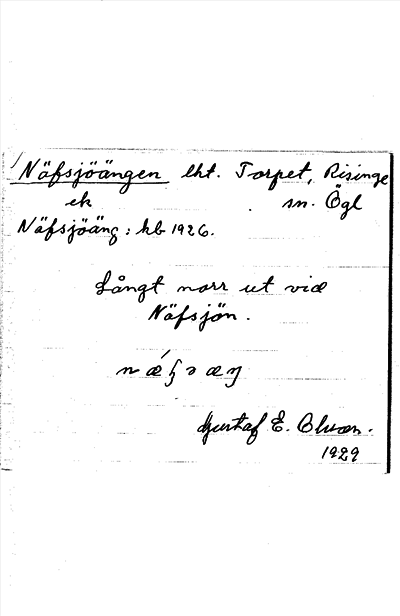 Näfsjöängen lht. Torpet, Risinge
ek sn. Ögl
Näfsjöäng : hb 1926.
Långt norr ut vid
Näfsjön.
Gustaf E. Olson.
1929